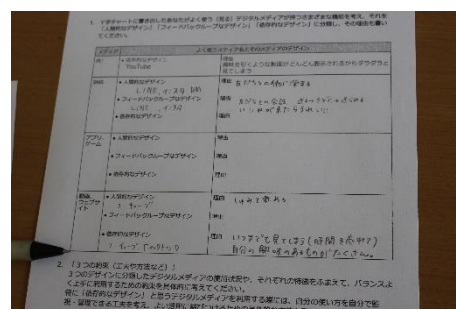 1. Y字チャートに書き出したあなたがよく使う（見る）デジタルメディアが持つさまざまな機能を考え、それを
「人間的なデザイン」「フィードバックループなデザイン」「依存的なデザイン」に分類し、その理由も書い
てください。
メディア よく使うメディアとそのメディアのデザイン
例） • 依存的なデザイン 理由
YouTube 興味を引くような動画がどんどん表示されるからダラダラと
見てしまう
SNS • 人間的なデザイン 理由 友だちとの
LINE、インスタ DM
• フィードバックループなデザイン 理由 友だちとの会話
LINE、インスタ いいねが
• 依存的なデザイン 理由
アプリ • 人間的なデザイン 理由
ゲーム
• フィードバックループなデザイン 理由
• 依存的なデザイン 理由
動画 • 人間的なデザイン 理由
ウェブサ ユーチューブ
イト • フィードバックループなデザイン 理由
• 依存的なデザイン 理由 いつまでも見てしまう（時間を忘れて）
ユーチューブ 自分の興味のあるものがたくさん。
2. 「3つの約束（工夫や方法など）」
3つのデザインに分類したデジタルメディアの使用状況や、それぞれの特徴をふまえて、バランスよ
く上手に利用するための約束を具体的に考えてください。
特に「依存的なデザイン」と思うデジタルメディアを利用する際には、自分の使い方を自分で監
視・管理できる工夫を考え、よい活用に